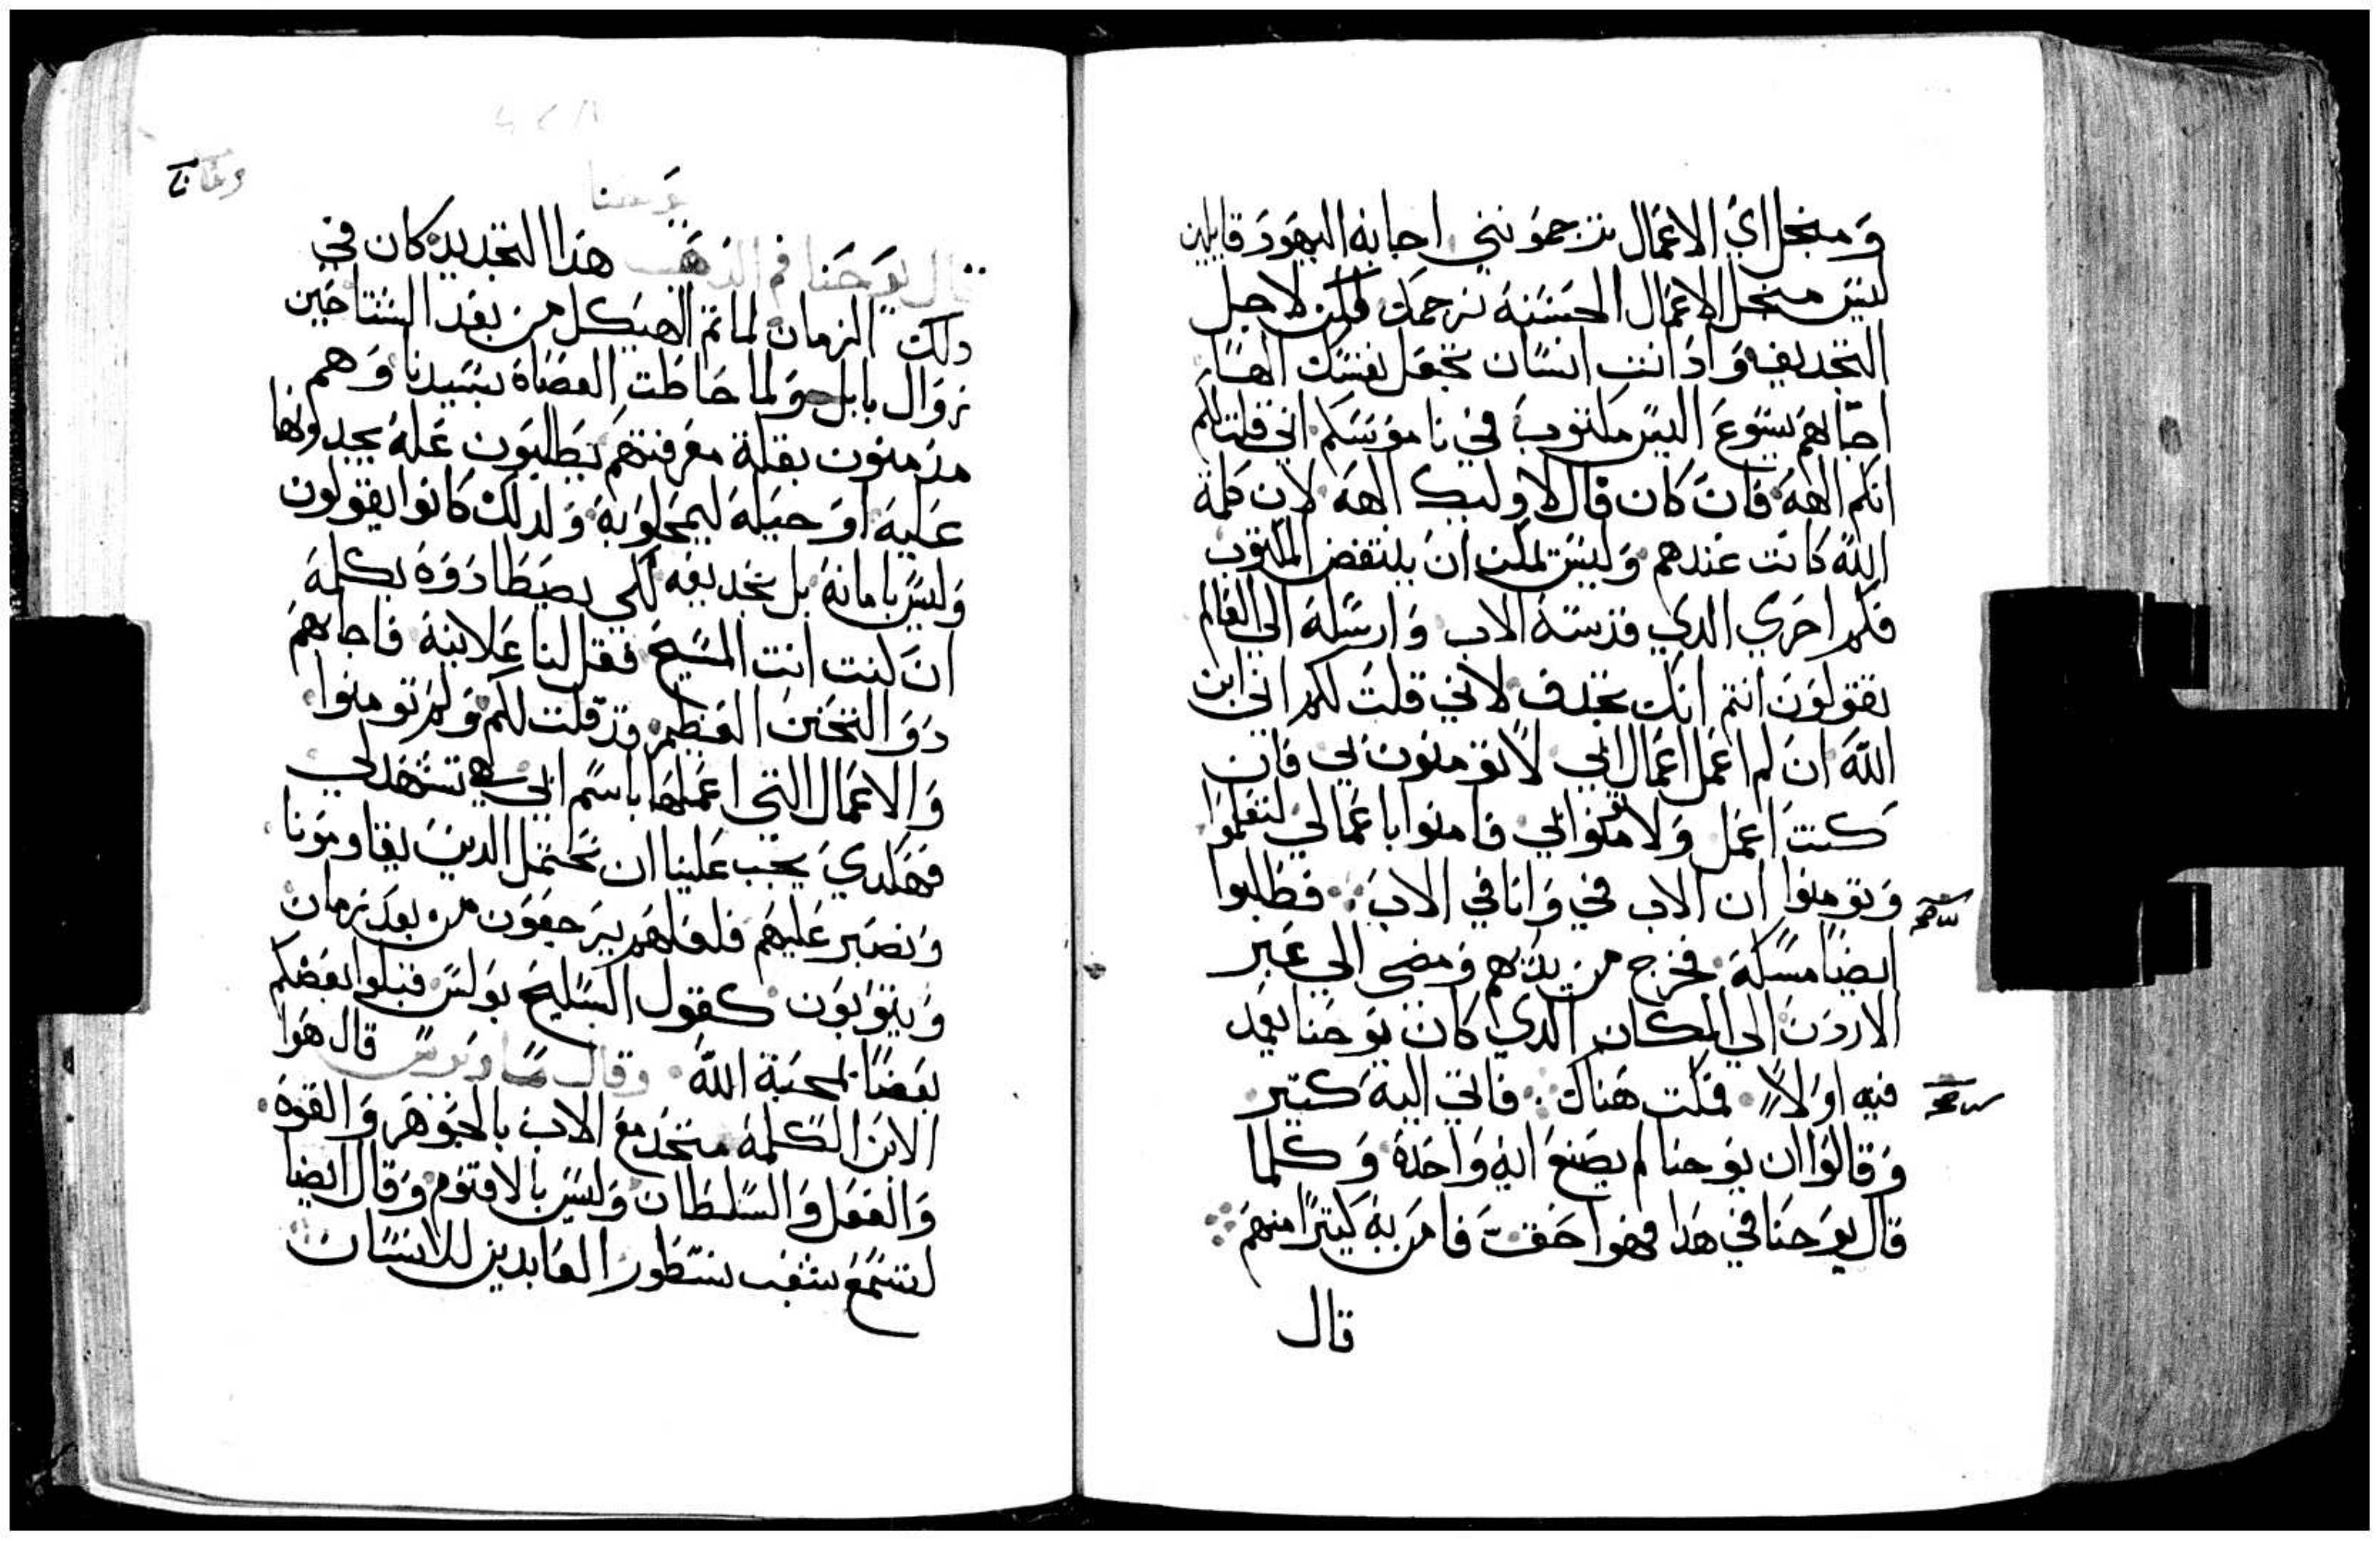 ومنجل اي الاعمال ترجمونني اجابه اليهود قايلين
ليس منجل الاعمال الحسنة نرجمك ولكن لاجل
التجديف واذ انت انسان تجعل نفسك الها
اجابهم يسوع اليس مكتوب في ناموسكم اني قلت لكم
انكم الهة فان كان قال لاوليك الهه لان كلمة
الله كانت عندهم وليس تمكن ان ينتقض المكتوب
فكم احري الدي قدسة الاب وارسلة الي العالم
تقولون انتم انك تجدف لاني قلت لكم اني ابن
الله ان لم اعمل اعمال ابي لا تومنون بي فان
كنت اعمل ولا تومنوا بي فامنوا باعمالي لتعلموا
وتومنوا ان الاب في وانا في الاب فطلبوا
ايضا مسكة فخرج من يديهم ومضي الي عبر
الاردن الي المكان الدي كان يوحنا يعمد
فيه اولا فمكت هناك فاتي الية كتير
وقالوا ان يوحنا لم يصنع اية واحدة وكلما
قال يوحنا في هدا فهوا حق فامن به كتيرا منهم
قال
يوحنا
قال يوحنا فم الدهب هدا التجديد كان في
دلك الزمان لما تم الهيكل من بعد الستاجين
زوال بابل ولما حاطت العصاة بسيدنا وهم
مزمنون بقلة معرفتهم يطلبون علة يجدونها
عليه او حيلة ليمحلوا به ولدلك كانوا يقولون
وليس بامانة بل تجديفه لكي يصطادوه بكلمة
ان كنت انت المسيح فقل لنا علانية فاجابهم
دو التحنن العظيم قد قلت لكم ولم تومنوا
والاعمال التي اعملها باسم ابي هي تشهد لي
فهكدي يجب علينا ان نحتمل الدين يقاومونا
ونصبر عليهم فلعلهم يرجعون من بعد زمان
ويتوبون كقول السليح بولس فتبلوا بعضكم
بعضا بمحبة الله وقال ساويرس قال هوا
الابن الكلمة متحد مع الاب بالجوهر والقوة
والفعل والسلطان وليس بالاقنوم وقال ايضا
لتسمع شعب نسطور العابدين للانسان